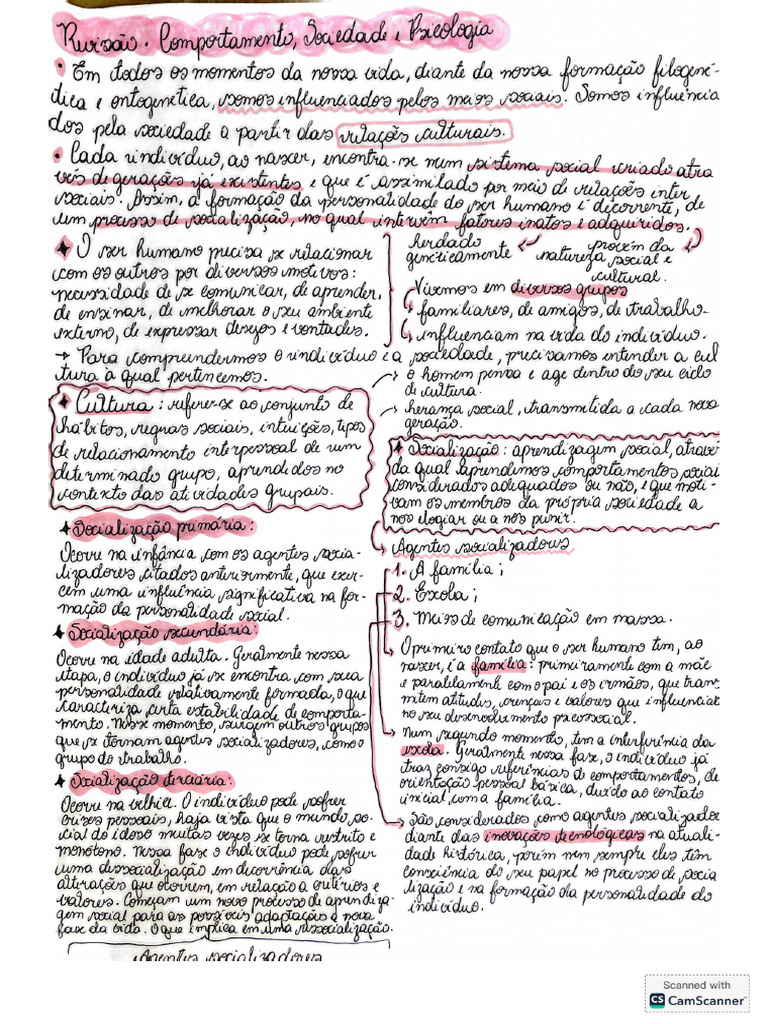 Revisão. Comportamento, Sociedade e Psicologia
• Em todos os momentos da nossa vida, diante da nossa formação filogené-
tica e ontogenética, somos influenciados pelos meios sociais. Somos influencia
dos pela sociedade a partir das relações culturais.
• Cada indivíduo, ao nascer, encontra-se num sistema social criado atra
vés de gerações já existentes e que é assimilado por meio de relações inter
sociais. Assim, a formação da personalidade do ser humano é decorrente, de
um processo de socialização, no qual intervêm fatores inatos e adquiridos.
herdado
geneticamente
provém da
natureza social e
cultural.
✦ O ser humano precisa se relacionar
com os outros por diversos motivos:
necessidade de se comunicar, de aprender,
de ensinar, de melhorar o seu ambiente
externo, de expressar desejos e vontades.
Vivemos em diversos grupos
familiares, de amigos, de trabalho-
influenciam na vida do indivíduo.
→ Para compreendermos o indivíduo e a sociedade, precisamos entender a cul
tura à qual pertencemos.
o homem pensa e age dentro do seu ciclo
de cultura.
herança social, transmitida a cada nova
geração.
✦ Cultura: refere-se ao conjunto de
hábitos, regras sociais, intuições, tipos
de relacionamento interpessoal de um
determinado grupo, aprendidos no
contexto das atividades grupais.
✦ Socialização: aprendizagem social, atravé
da qual aprendemos comportamentos sociai
considerados adequados ou não, e que moti-
vam os membros da própria sociedade a
nos elogiar ou a nos punir.
✦ Socialização primária:
Ocorre na infância com os agentes socia-
lizadores citados anteriormente, que exer-
cem uma influência significativa na for-
mação da personalidade social.
✦ Socialização secundária:
Ocorre na idade adulta. Geralmente nessa
etapa, o indivíduo já se encontra com sua
personalidade relativamente formada, o que
caracteriza certa estabilidade de comporta-
mento. Nesse momento, surgem outros grupos
que se tornam agentes socializadores, como o
grupo do trabalho.
✦ Socialização terciária:
Ocorre na velhice. O indivíduo pode sofrer
crises pessoais, haja vista que o mundo so-
cial do idoso muitas vezes se torna restrito e
monótono. Nessa fase o indivíduo pode sofrer
uma dessocialização em decorrência das
alterações que ocorrem, em relação a critérios e
valores. Começam um novo processo de aprendiza-
gem social para as possíveis adaptação e nova
fase da vida. O que implica em uma ressocialização.
Agentes socializadores
1. A família;
2. Escola;
3. Meios de comunicação em massa.
O primeiro contato que o ser humano tem, ao
nascer, é a família: primeiramente com a mãe
e paralelamente com o pai e os irmãos, que trans
mitem atitudes, crenças e valores que influenciar
no seu desenvolvimento psicossocial.
Num segundo momento, tem a interferência da
escola. Geralmente nessa fase, o indivíduo já
traz consigo referências de comportamentos, de
orientação pessoal básica, devido ao contato
inicial com a família.
São considerados como agentes socializador
diante das inovações tecnológicas na atuali-
dade histórica, porém nem sempre eles têm
consciência do seu papel no processo de socia
lização e na formação da personalidade do
indivíduo.
Agentes socializadores
Scanned with
CS CamScanner